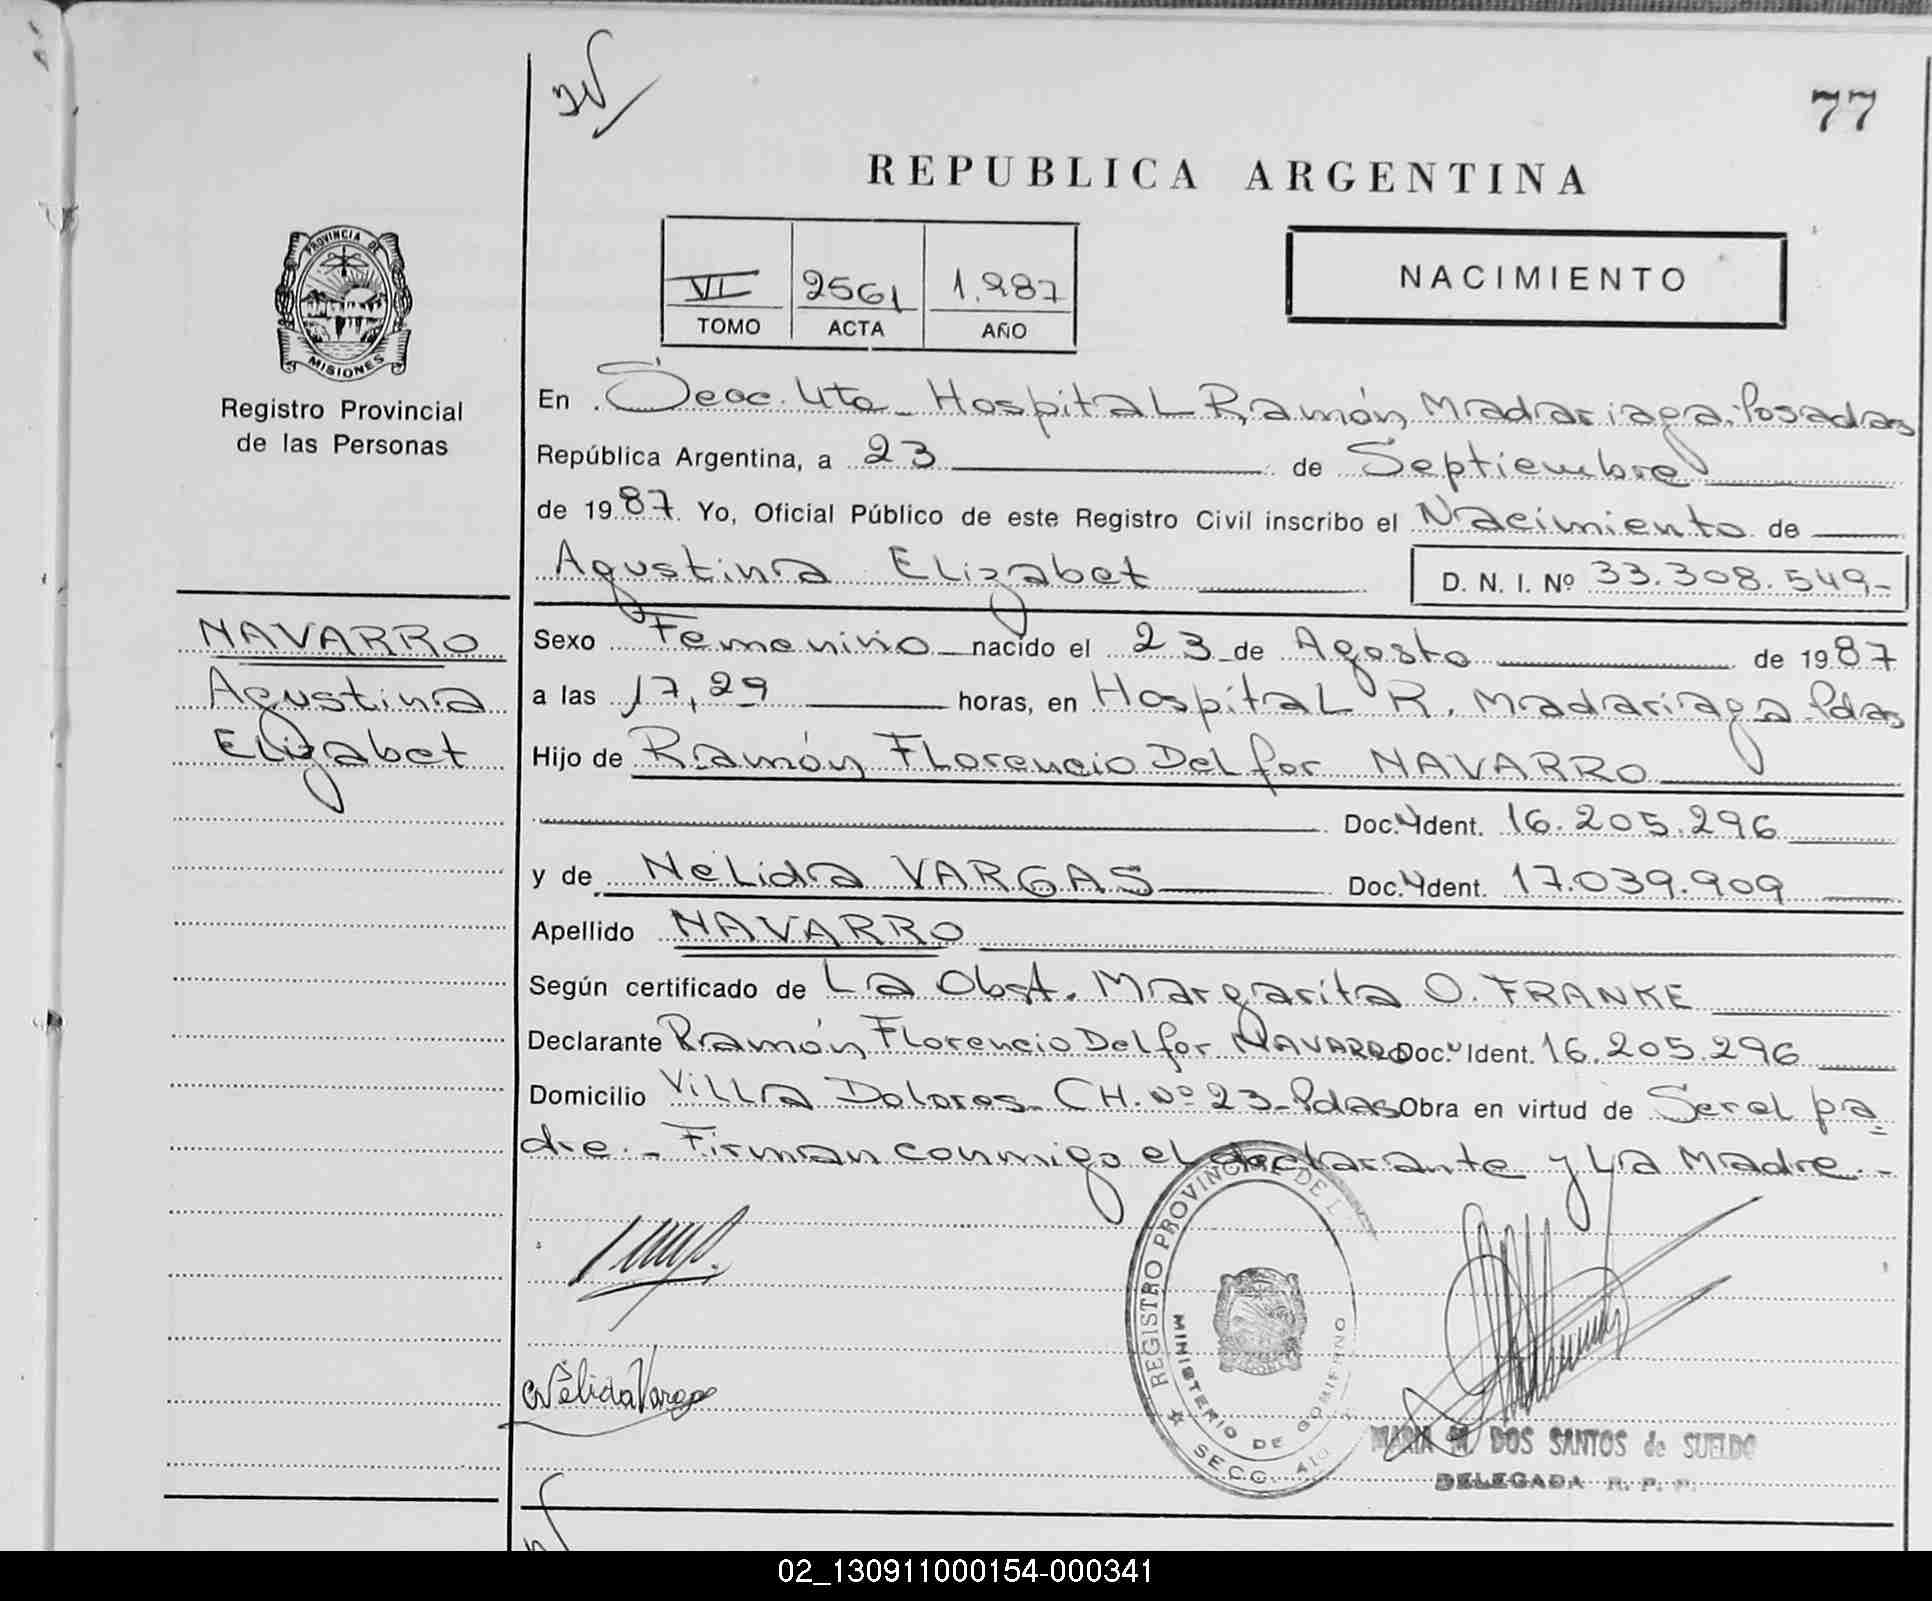 77
REPUBLICA ARGENTINA
PROVINCIA DE
MISIONES
Registro Provincial
de las Personas
VI 2561 1.987
TOMO ACTA AÑO
NACIMIENTO
En Secc. 4ta - Hospital Ramón Madariaga. Posadas
República Argentina, a 23 de Septiembre
de 1987 Yo, Oficial Público de este Registro Civil inscribo el Nacimiento de
Agustina Elizabet D. N. I. Nº 33.308.549-
NAVARRO
Agustina
Elizabet
Sexo Femenino nacido el 23 de Agosto de 1987
a las 17,29 horas, en Hospital R. Madariaga Pdas
Hijo de Ramón Florencio Delfor NAVARRO
Doc. Ident. 16.205.296
y de Nelida VARGAS Doc. Ident. 17.039.909
Apellido NAVARRO
Según certificado de La Obst. Margarita O. FRANKE
Declarante Ramón Florencio Delfor NAVARRO Doc. Ident. 16.205.296
Domicilio Villa Dolores - CH. Nº 23 - Pdas Obra en virtud de Ser el pa
dre. - Firman conmigo el declarante y La Madre. -
REGISTRO PROVINCIAL DE L
MINISTERIO DE GOBIERNO
SECC. 4ta
Nélida Vargas
MARIA M. DOS SANTOS de SUELDO
DELEGADA R. P. P.
02_130911000154-000341